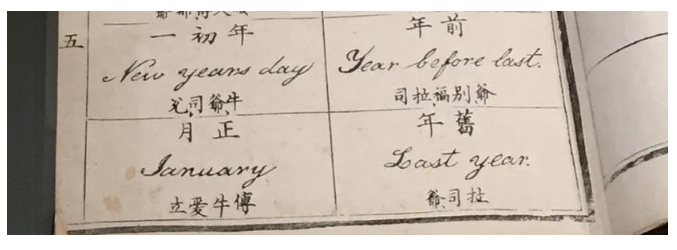 前年
Year before last.
爺別福拉司
舊年
Last year.
拉司爺
年初一
New years day
牛爺司
正月
January
傳牛愛立
五